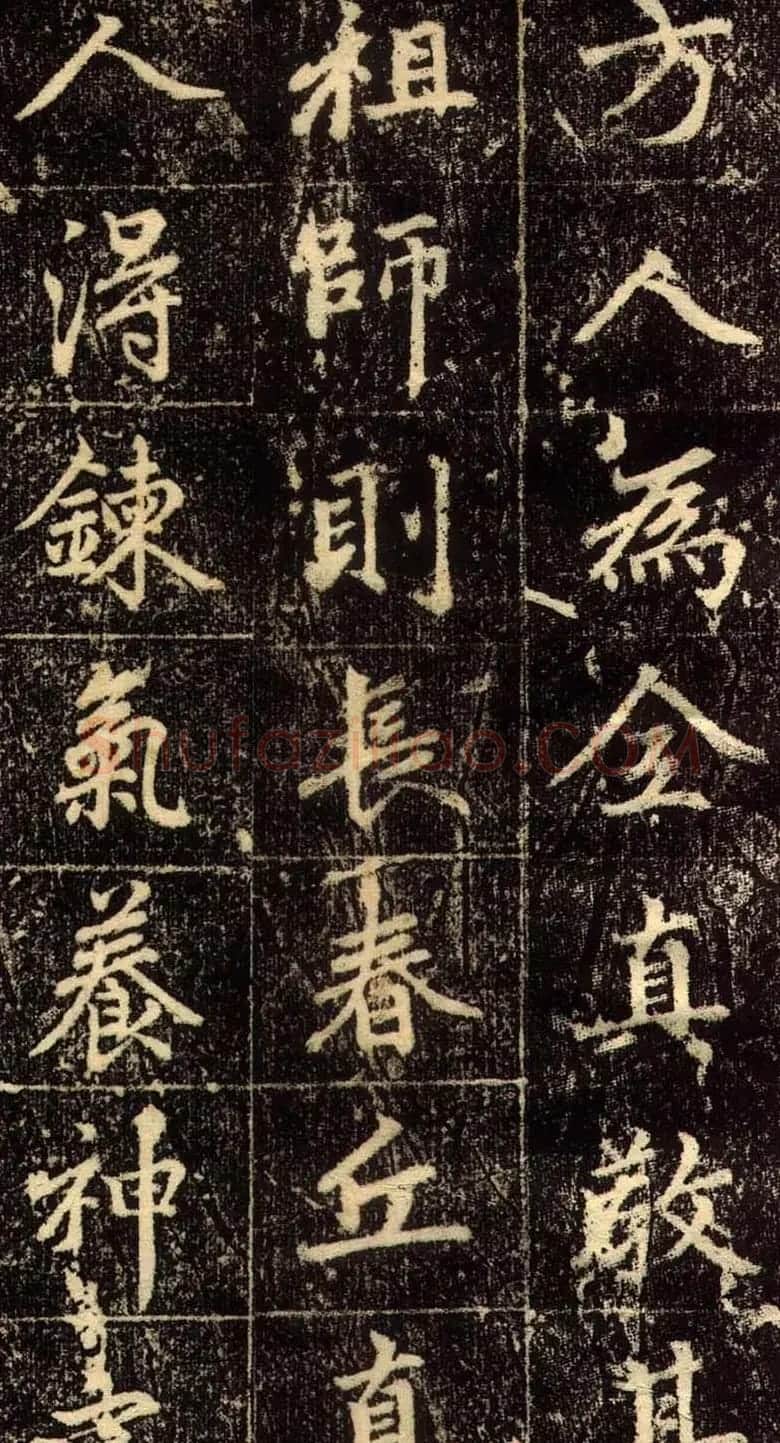 方人為全真敬其
祖師則長春丘真
人得鍊氣養神
shufazidao.COM